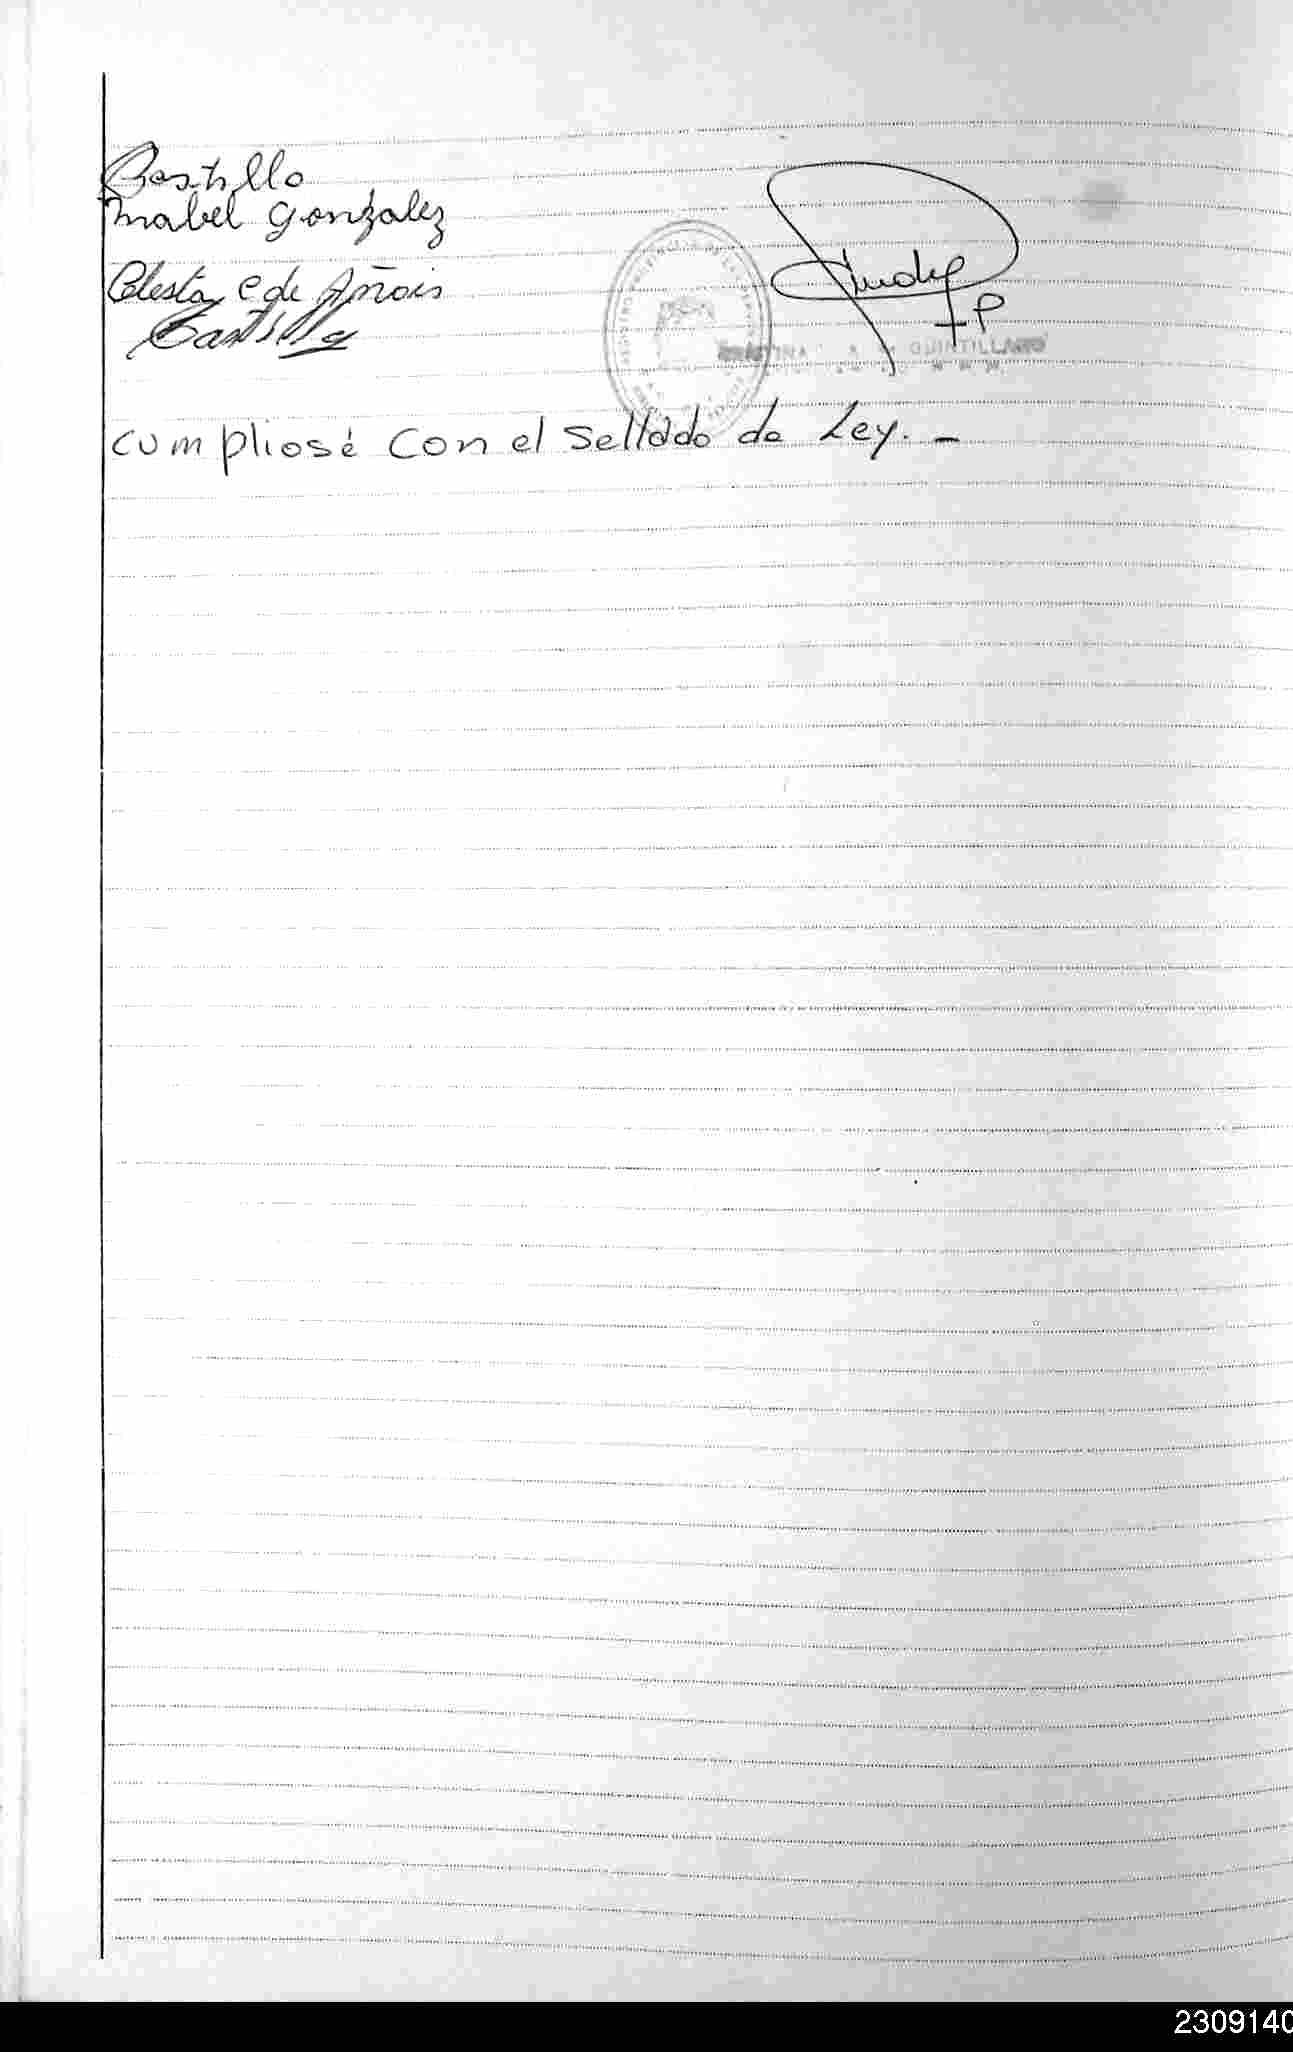 Castillo
Mabel Gonzalez
Celesta C de Añois
Castillo
P
QUINTILLANO
cumpliosé con el sellado de Ley. –
2309140